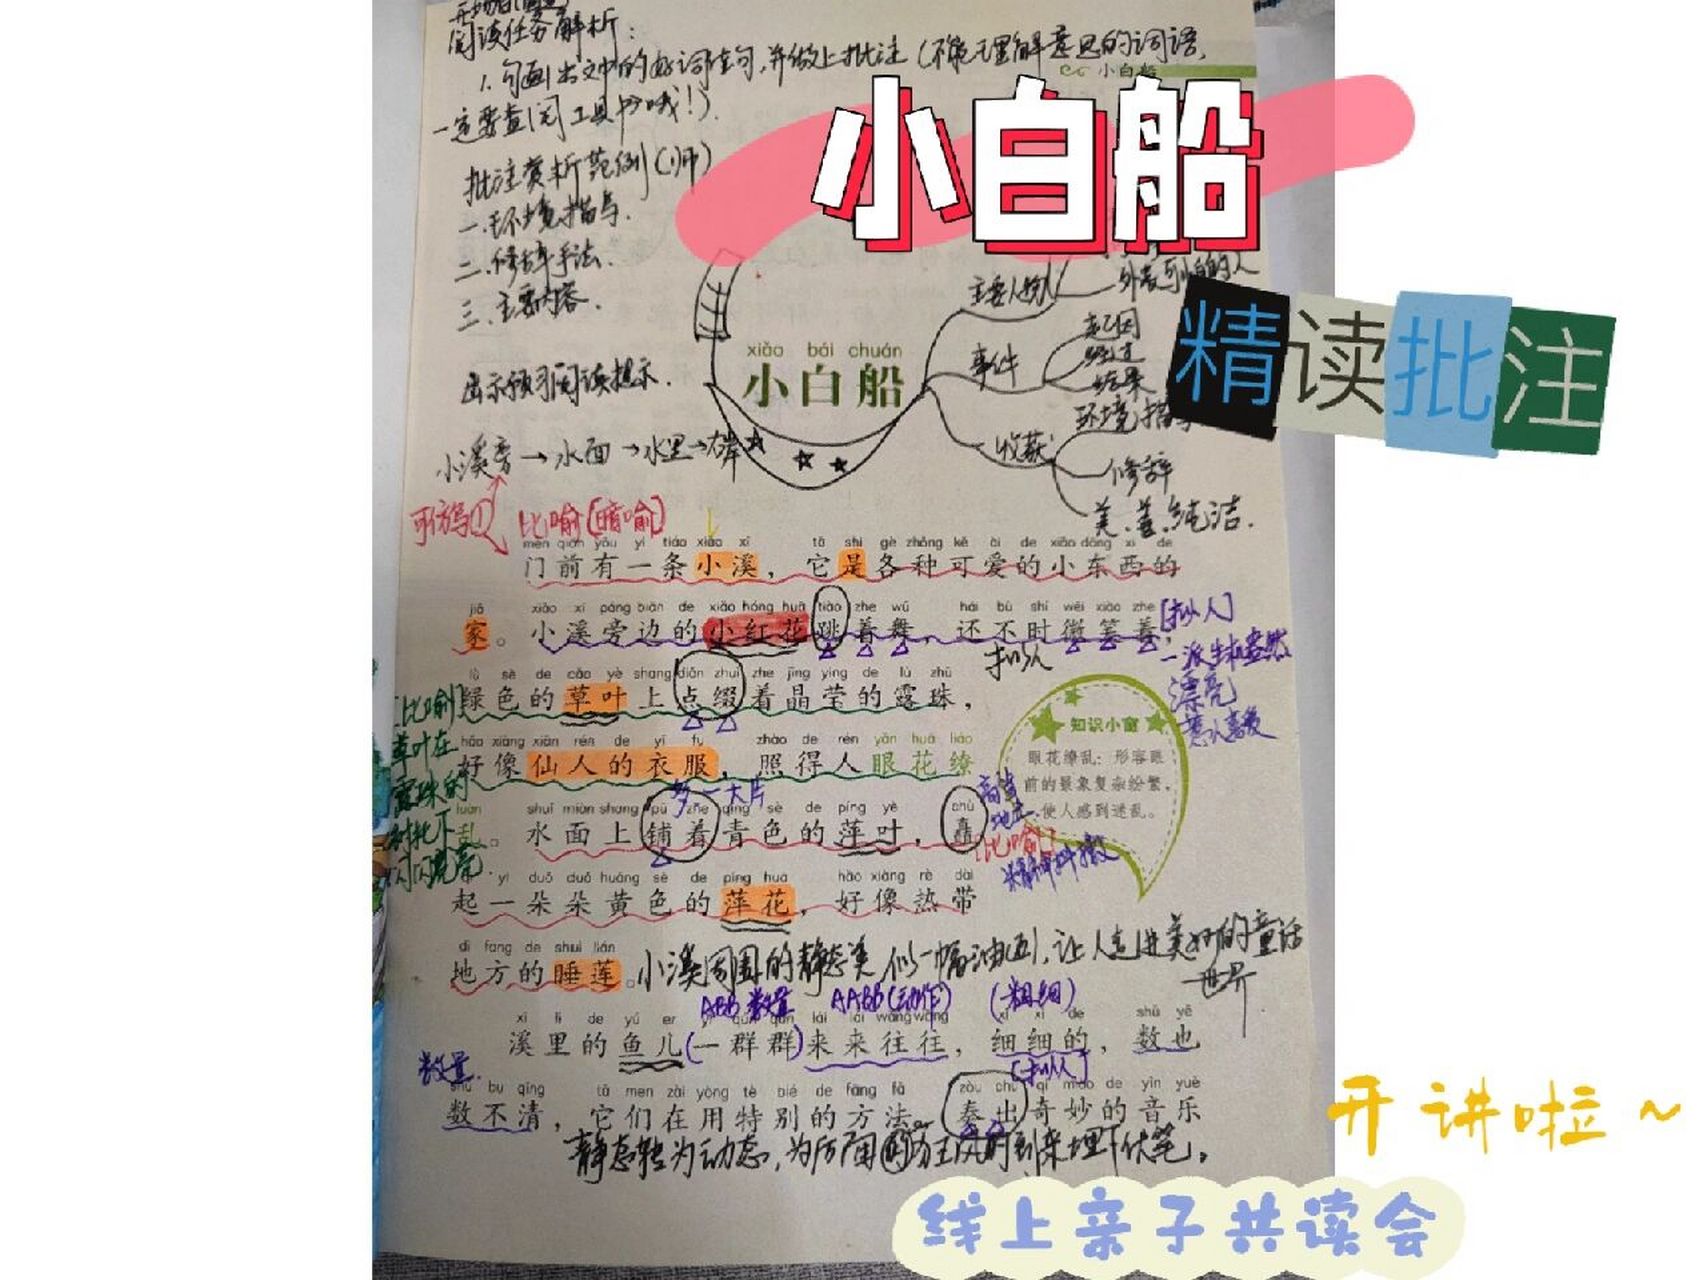 阅读任务解析：
1.勾画出文中的好词佳句，并做上批注（不能理解意思的词语，
一定要查阅工具书哦！）.
小白船
批注赏析范例（师）
一.环境描写.
二.修辞手法.
三.主要内容.
出示预习阅读提示.
小溪旁→水面→水里→右岸
小白船
精读批注
xiǎo bái chuán
小白船
主要人物
事件
起因
经过
结果
收获
环境描写
修辞
美、善、纯洁.
可仿写①
比喻[暗喻]
mén qián yǒu yì tiáo xiǎo xī tā shì gè zhǒng kě ài de xiǎo dōng xi de
门前有一条小溪，它是各种可爱的小东西的
jiā xiǎo xī páng biān de xiǎo hóng huā tiào zhe wǔ hái bù shí wēi xiào zhe
家。小溪旁边的小红花跳着舞，还不时微笑着，
[拟人]
拟人
一派生机盎然
漂亮
惹人喜爱
lǜ sè de cǎo yè shang diǎn zhuì zhe jīng yíng de lù zhū
绿色的草叶上点缀着晶莹的露珠，
[比喻]
草叶在
露珠的
衬托下
闪闪亮亮
hǎo xiàng xiān rén de yī fu zhào de rén yǎn huā liáo
好像仙人的衣服，照得人眼花缭
多一大片
luàn shuǐ miàn shang pū zhe qīng sè de píng yè chù
乱。水面上铺着青色的萍叶，矗
高高
地立
[比喻]
精神抖擞
qǐ yì duǒ duǒ huáng sè de píng huā hǎo xiàng rè dài
起一朵朵黄色的萍花，好像热带
dì fang de shuì lián
地方的睡莲。
知识小窗
眼花缭乱：形容眼
前的景象复杂纷繁，
使人感到迷乱。
小溪周围的静态美似一幅油画，让人走进美妙的童话
世界
ABB 数量 AABB(动作) (粗细)
xī li de yú er yì qún qún lái lái wǎng wǎng xì xì de shǔ yě
溪里的鱼儿(一群群)来来往往，细细的，数也
数量.
[拟人]
shǔ bu qīng tā men zài yòng tè bié de fāng fǎ zòu chū qí miào de yīn yuè
数不清，它们在用特别的方法奏出奇妙的音乐
静态转为动态，为后面的
到来埋下伏笔。
开讲啦～
线上亲子共读会